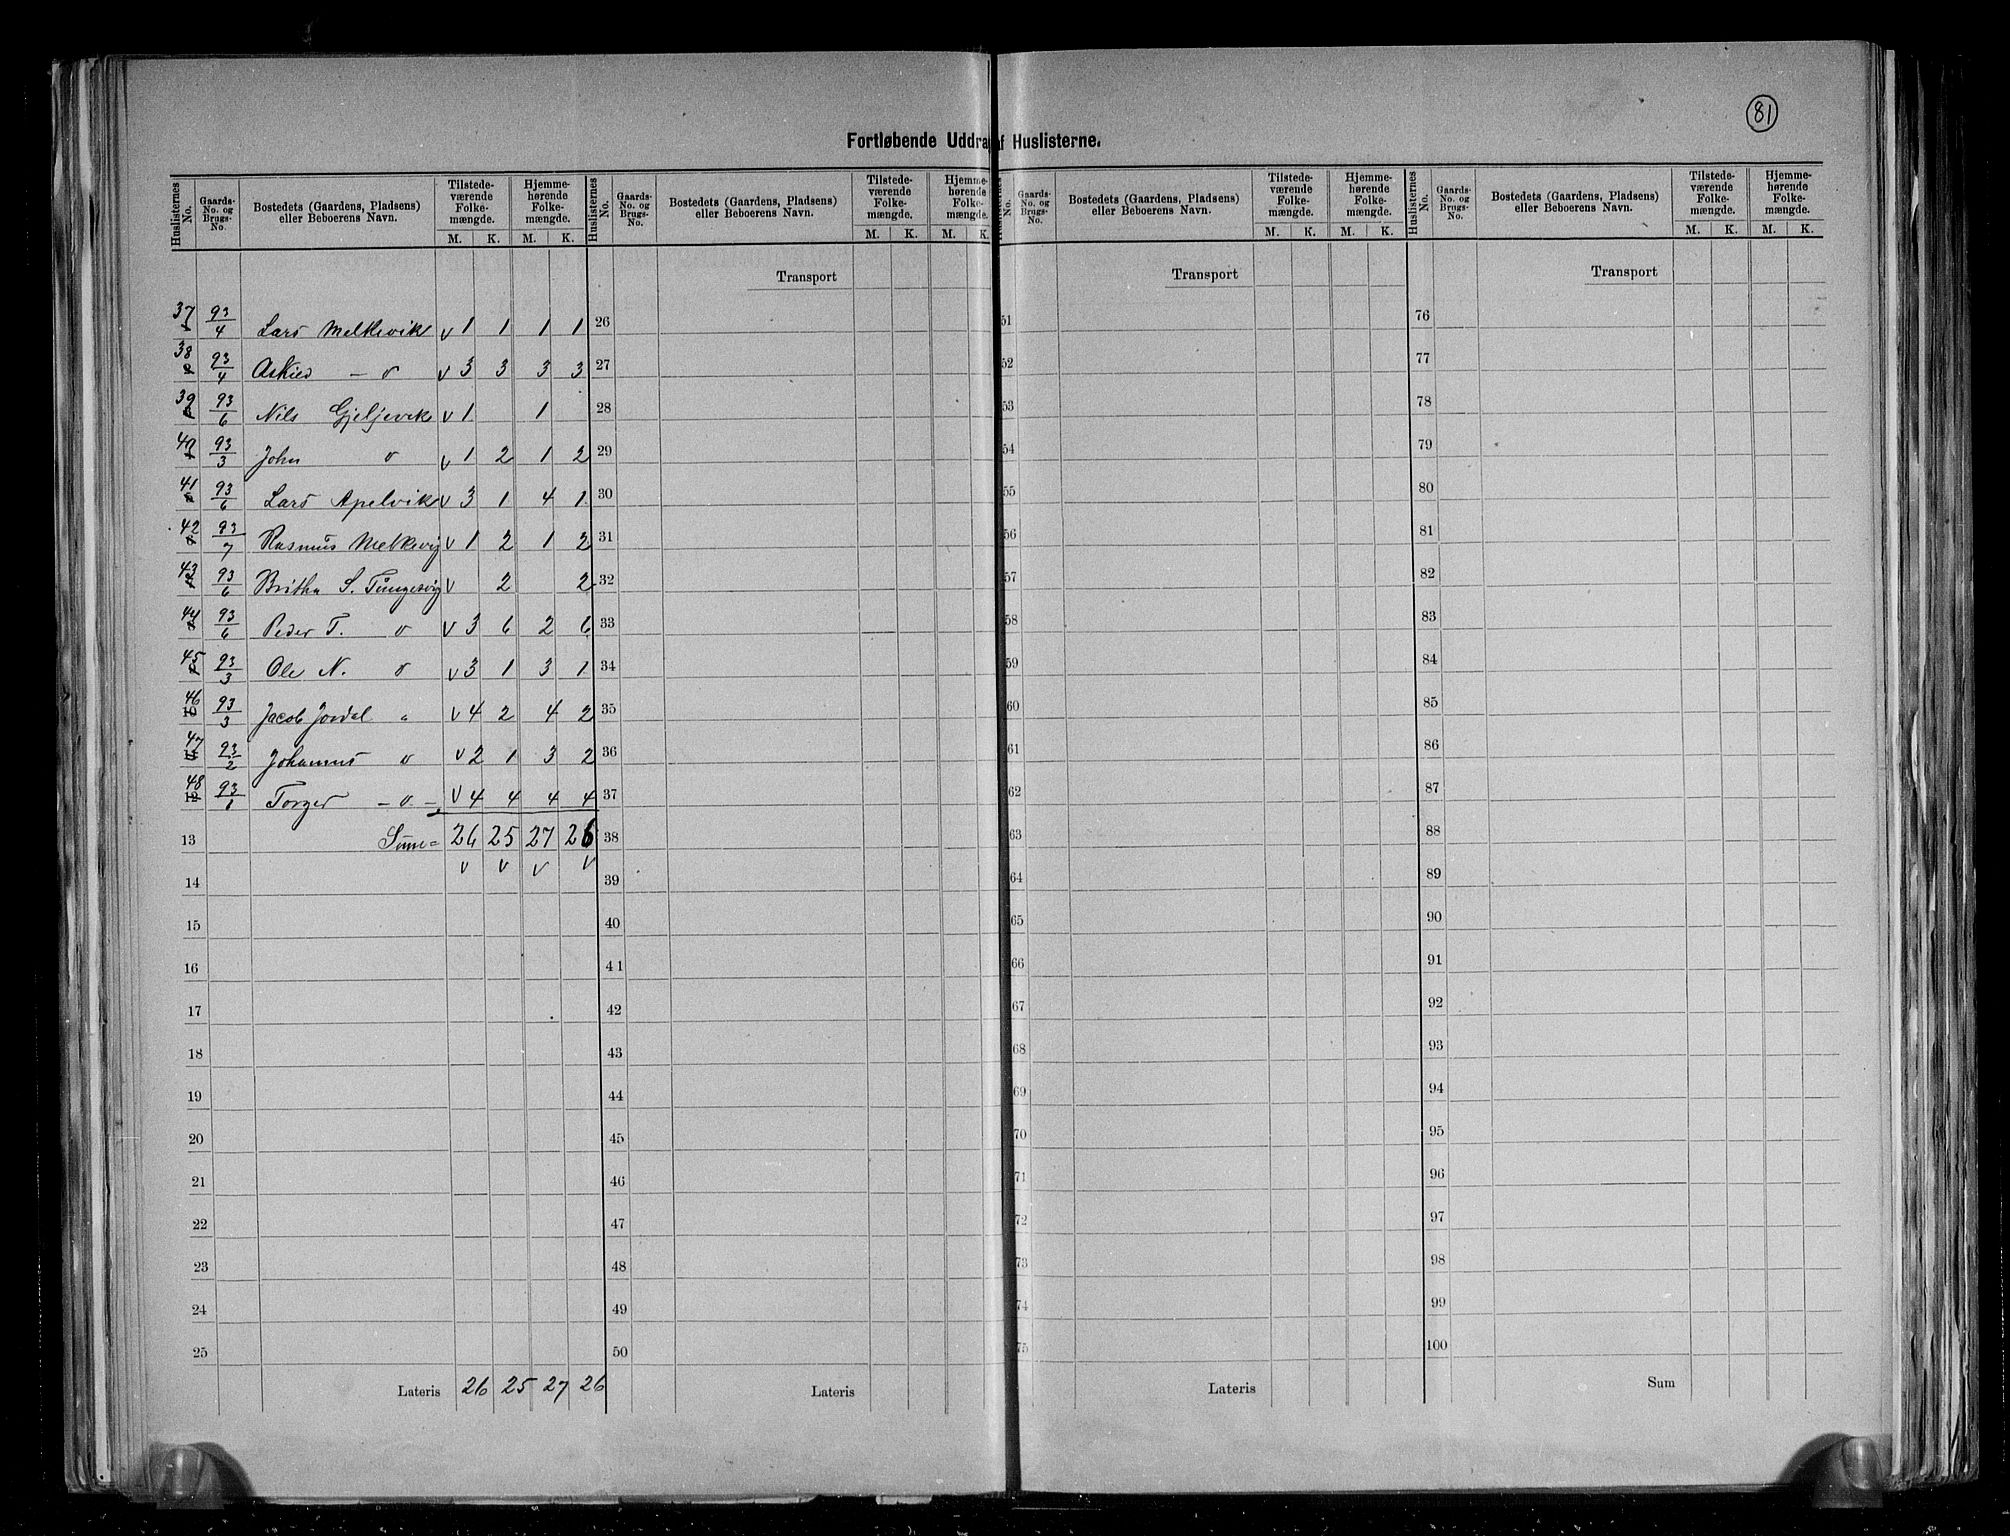 81
Fortløbende Uddrag af Huslisterne.
Huslisternes No. Gaards-No. og Brugs-No. Bostedets (Gaardens, Pladsens) eller Beboerens Navn. Tilstede-værende Folke-mængde. M. K. Hjemme-hørende Folke-mængde. M. K.
37 1 93/4 Lars Melkevik v 1 1 1 1
38 2 93/4 Askild — o v 3 3 3 3
39 3 93/6 Nils Gjeljevik v 1 1
40 4 93/3 John o v 1 2 1 2
41 5 93/6 Lars Apelvik v 3 1 4 1
42 6 93/7 Rasmus Melkevig v 1 2 1 2
43 7 93/6 Britha S. Tungesvig v 2 2
44 8 93/6 Peder T. o v 3 6 2 6
45 9 93/3 Ole N. o v 3 1 3 1
46 10 93/3 Jacob Jordal " v 4 2 4 2
47 11 93/2 Johannes o v 2 1 3 2
48 12 93/1 Torger — o — v 4 4 4 4
13 Sum = 26 25 27 26
v v v v
14
15
16
17
18
19
20
21
22
23
24
25
Lateris 26 25 27 26
Huslisternes No. Gaards-No. og Brugs-No. Bostedets (Gaardens, Pladsens) eller Beboerens Navn. Tilstede-værende Folke-mængde. M. K. Hjemme-hørende Folke-mængde. M. K.
Transport
26
27
28
29
30
31
32
33
34
35
36
37
38
39
40
41
42
43
44
45
46
47
48
49
50
Lateris
Huslisternes No. Gaards-No. og Brugs-No. Bostedets (Gaardens, Pladsens) eller Beboerens Navn. Tilstede-værende Folke-mængde. M. K. Hjemme-hørende Folke-mængde. M. K.
Transport
51
52
53
54
55
56
57
58
59
60
61
62
63
64
65
66
67
68
69
70
71
72
73
74
75
Lateris
Huslisternes No. Gaards-No. og Brugs-No. Bostedets (Gaardens, Pladsens) eller Beboerens Navn. Tilstede-værende Folke-mængde. M. K. Hjemme-hørende Folke-mængde. M. K.
Transport
76
77
78
79
80
81
82
83
84
85
86
87
88
89
90
91
92
93
94
95
96
97
98
99
100
Sum